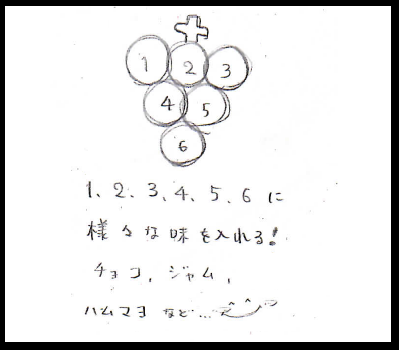 1 2 3
4 5
6
1、2、3、4、5、6 に
様々な味を入れる!
チョコ、ジャム、
ハムマヨ など...